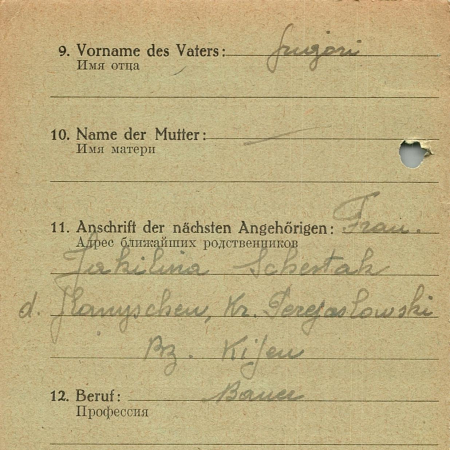 9. Vorname des Vaters: Grigori
Имя отца
10. Name der Mutter: —
Имя матери
11. Anschrift der nächsten Angehörigen: Frau.
Адрес ближайших родственников
Jakilina Schestak
d. Stanyschen, Kr. Perejaslowski
Bz. Kijew
12. Beruf: Bauer
Профессия